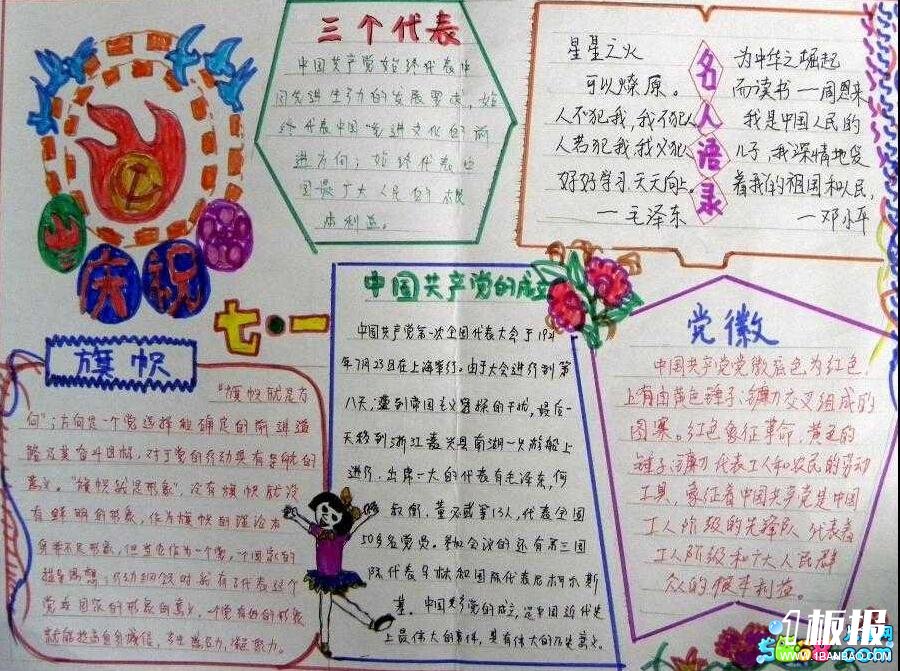 三个代表
中国共产党始终代表中
国先进生产力的发展要求,始
终代表中国先进文化的前
进方向;始终代表中
国最广大人民的根
本利益。
名人语录
星星之火
可以燎原。
人不犯我,我不犯人
人若犯我,我必犯人
好好学习,天天向上。
—毛泽东
为中华之崛起
而读书—周恩来
我是中国人民的
儿子,我深情地爱
着我的祖国和人民,
—邓小平
庆祝
七·一
旗帜
"旗帜就是方
向";方向是一个党选择和确定的前进道
路及其奋斗目标,对于党的行动具有导航的
意义。"旗帜就是形象",没有旗帜就没
有鲜明的形象,作为旗帜的理论本
身并不是形象,但当它作为一个党、一个国家的
指导思想
党和国家的形象的意义,一个党有好的形象
中国共产党的成立
中国共产党第一次全国代表大会于1921
年7月23日在上海举行。由于大会进行到第
八天,遭到帝国主义密探的干扰,最后一
天移到浙江嘉兴县南湖一只游船上
进行。出席一大的代表有毛泽东,何
叔衡,董必武等13人,代表全国
50多名党员。参加会议的还有第三国
际代表马林和国际代表尼柯尔斯
基。中国共产党的成立,是中国近代史
上最伟大的事件,具有伟大的历史意义。
党徽
中国共产党党徽底色为红色,
上有由黄色锤子、镰刀交叉组成的
图案。红色象征革命,黄色的
锤子、镰刀代表工人和农民的劳动
工具,象征着中国共产党是中国
工人阶级的先锋队,代表着
工人阶级和广大人民群
众的根本利益。
1板报
WWW.1BANBAO.COM